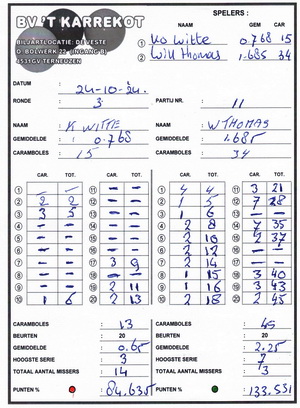 BV 'T KARREKOT
BILJARTLOCATIE: DE VESTE
D. BOLWERK 23 (INGANG B)
4531GV TERNEUZEN
SPELERS :
NAAM GEM CAR
1 Ko Witte 0.768 15
2 Will Thomas 1.685 34
DATUM : 24-10-24.
RONDE : 3 PARTIJ NR. : 11
NAAM : K WITTE NAAM : W THOMAS
GEMIDDELDE : 0.768 GEMIDDELDE : 1.685
CARAMBOLES : 15 CARAMBOLES : 34
CAR. TOT. CAR. TOT. CAR. TOT. CAR. TOT.
1 - - 11 - - 1 4 4 11 3 21
2 2 2 12 - - 2 1 5 12 7 28
3 3 5 13 - - 3 1 6 13 - -
4 - - 14 - - 4 2 8 14 7 35
5 - - 15 - - 5 2 10 15 2 37
6 - - 16 - - 6 2 12 16 - -
7 - - 17 3 9 7 2 14 17 - -
8 - - 18 - - 8 1 15 18 3 40
9 - - 19 2 11 9 1 16 19 3 43
10 1 6 20 2 13 10 2 18 20 2 45
CARAMBOLES : 13 CARAMBOLES : 45
BEURTEN : 20 BEURTEN : 20
GEMIDDELDE : 0.65 GEMIDDELDE : 2.25
HOOGSTE SERIE : 3 HOOGSTE SERIE : 7
TOTAAL AANTAL MISSERS : 14 TOTAAL AANTAL MISSERS : 3
PUNTEN % : 84.635% PUNTEN % : 133.531